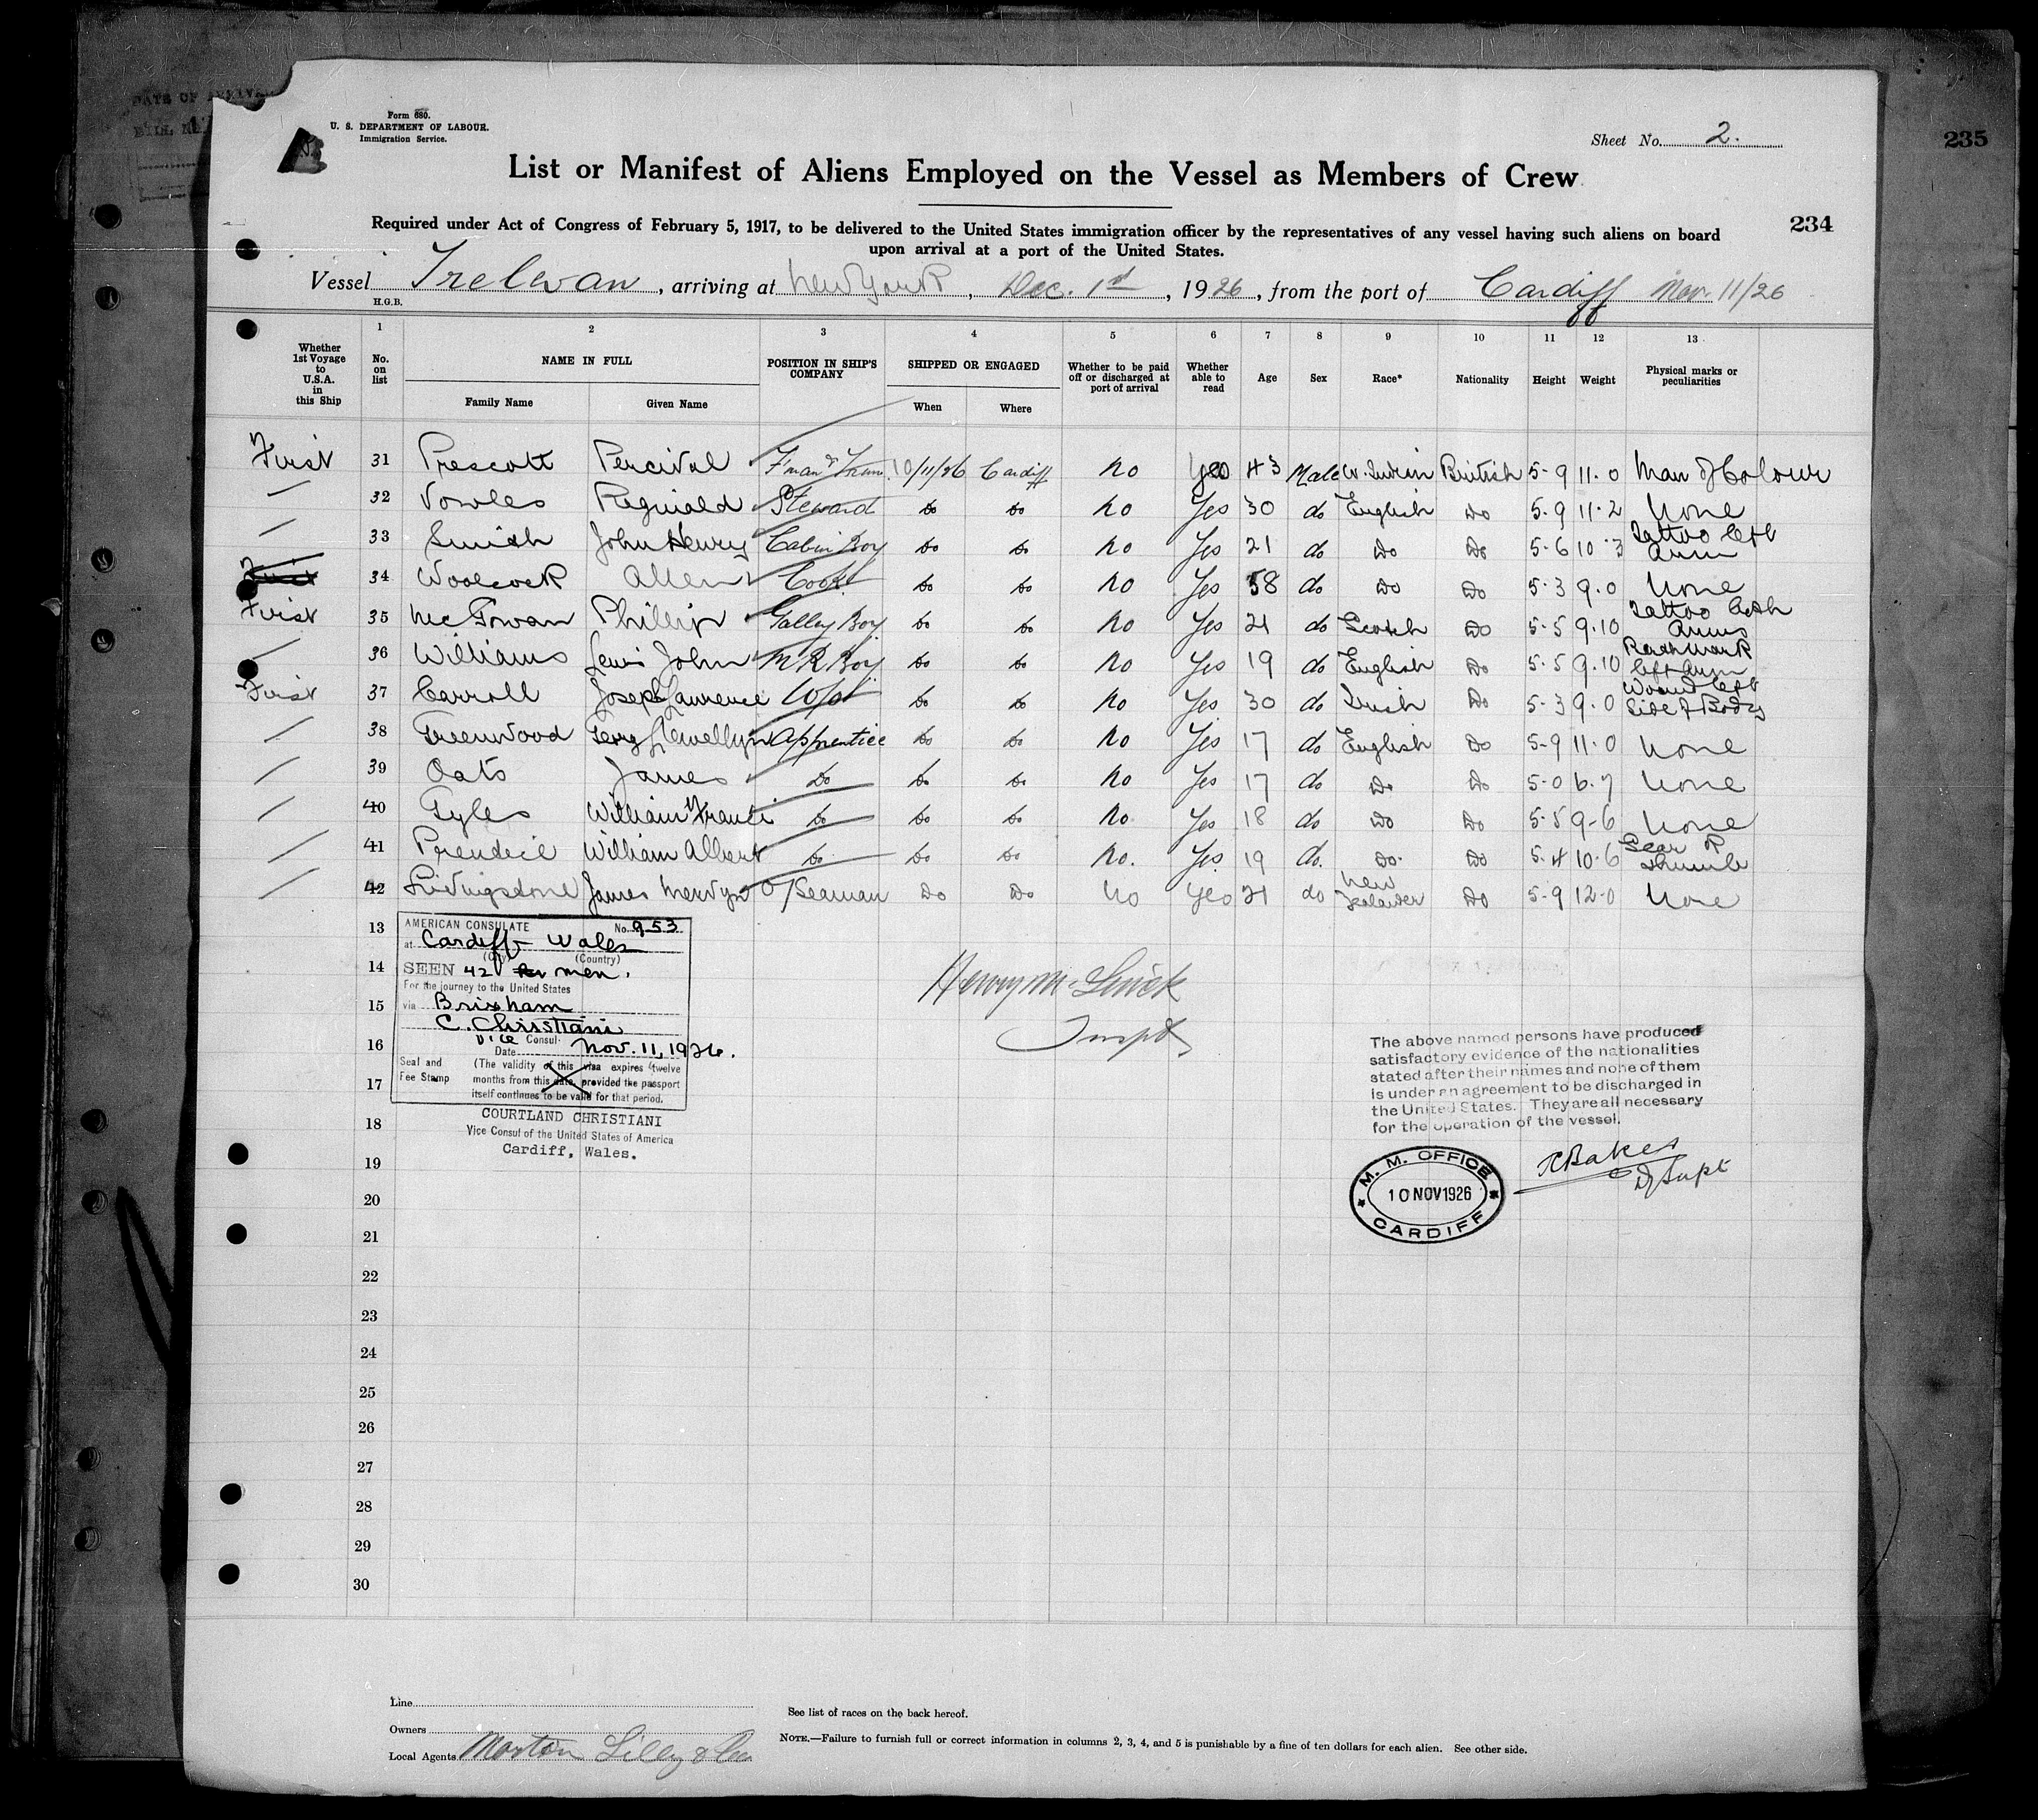 Form 680.
U. S. DEPARTMENT OF LABOUR.
Immigration Service.
Sheet No. 2.
235
List or Manifest of Aliens Employed on the Vessel as Members of Crew
234
Required under Act of Congress of February 5, 1917, to be delivered to the United States immigration officer by the representatives of any vessel having such aliens on board
upon arrival at a port of the United States.
Vessel Trelwan, arriving at New York, Dec. 1st, 1926, from the port of Cardiff Nov. 11/26
H.G.B.
1 2 3 4 5 6 7 8 9 10 11 12 13
Whether 1st Voyage to U.S.A. in this Ship No. on list NAME IN FULL Family Name Given Name POSITION IN SHIP'S COMPANY SHIPPED OR ENGAGED When Where Whether to be paid off or discharged at port of arrival Whether able to read Age Sex Race* Nationality Height Weight Physical marks or peculiarities
First 31 Prescott Percival 10/11/26 Cardiff No Yes 43 Male W. Indian British 5-9 11.0 Man of Colour
32 Vowles Reginald Steward Do Do No Yes 30 do English Do 5-9 11.2 None
33 Smith John Henry Cabin Boy Do Do No Yes 21 do Do Do 5-6 10.3 Tattoo left Arm
First 34 Woolcock Allen Cook Do Do No Yes 58 do Do Do 5-3 9.0 None
First 35 McGowan Phillip Galley Boy Do Do No Yes 21 do Scotch Do 5-5 9.10 Tattoo both Arms
36 Williams Lewis John M R Boy Do Do No Yes 19 do English Do 5-5 9.10 left Arm
First 37 Carroll Joseph Lawrence Do Do No Yes 30 do Irish Do 5-3 9.0 Wound left Side of Body
38 Greenwood Llewellyn Apprentice Do Do No Yes 17 do English Do 5-9 11.0 None
39 Oats James Do Do Do No Yes 17 do Do Do 5-0 6.7 None
40 Gyles William Do Do Do No Yes 18 do Do Do 5-5 9-6 None
41 William Albert Do Do Do No. Yes 19 do. Do. Do 5-4 10.6 Scar R Thumb
42 Livingstone James Mervyn O/Seaman Do Do No Yes 21 do New Zealander Do 5-9 12-0 None
13
14
15
16
17
18
19
20
21
22
23
24
25
26
27
28
29
30
AMERICAN CONSULATE No. 953
at Cardiff Wales
(City) (Country)
SEEN 42 men.
For the journey to the United States
via Brixham
C. Christiani
Vice Consul.
Date Nov. 11, 1926.
Seal and Fee Stamp
(The validity of this visa expires twelve
months from this date, provided the passport
itself continues to be valid for that period.
COURTLAND CHRISTIANI
Vice Consul of the United States of America
Cardiff, Wales.
Inspt
The above named persons have produced
satisfactory evidence of the nationalities
stated after their names and none of them
is under an agreement to be discharged in
the United States. They are all necessary
for the operation of the vessel.
Baker
Supt
M. M. OFFICE
10 NOV 1926
CARDIFF
Line
Owners
Local Agents Morton Lilly & Co
See list of races on the back hereof.
NOTE.—Failure to furnish full or correct information in columns 2, 3, 4, and 5 is punishable by a fine of ten dollars for each alien. See other side.